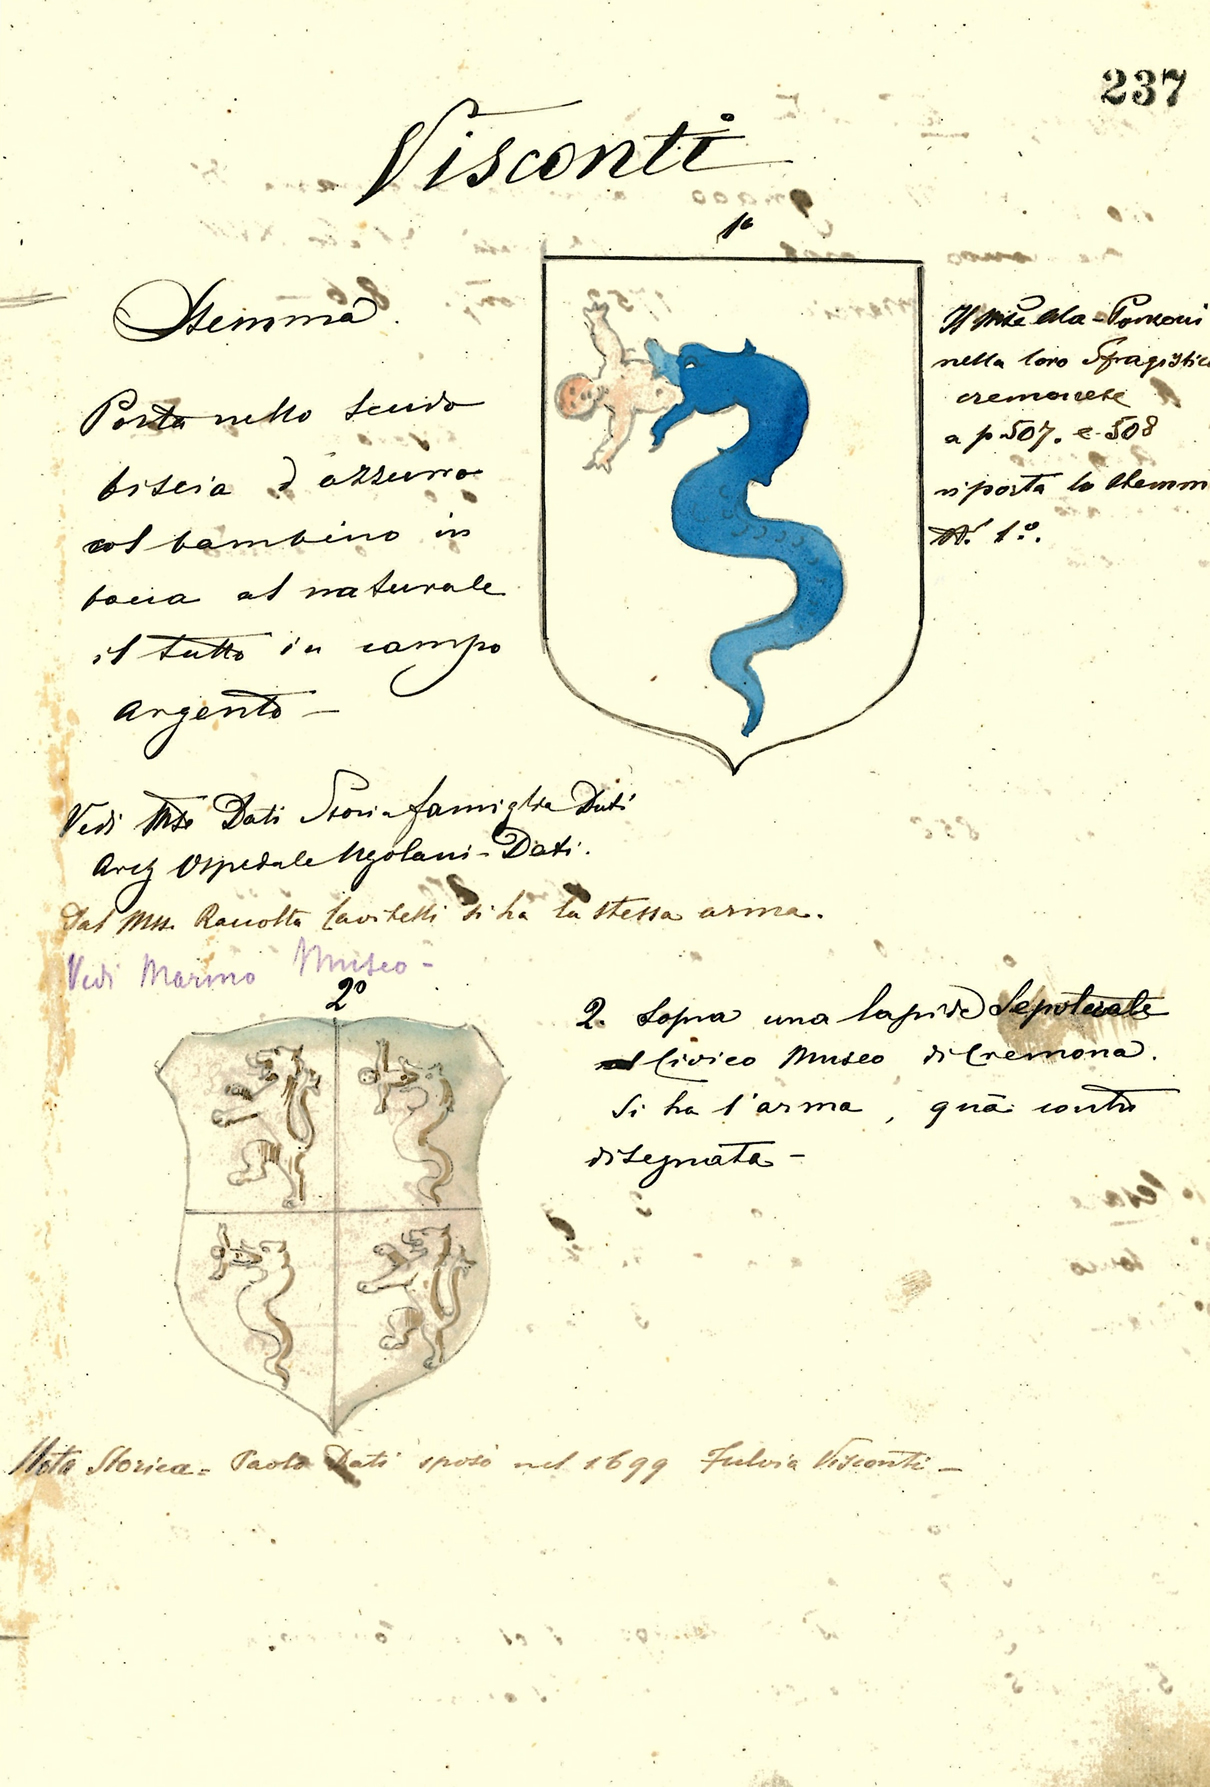 237
Visconti
1º
Stemma.
Porta nello scudo
biscia d'azzurro
col bambino in
bocca al naturale
il tutto in campo
argento –
Il Mse Ala-Ponzoni
nella loro Sfragistica
cremonese
a p. 507. e 508
riporta lo stemm
Nº 1º.
Vedi Mse Dati Storia famiglia Dati
Arch Ospedale Ugolani-Dati.
Dal Mss. Raccolta Cavitelli si ha la stessa arma.
Vedi Marmo Museo –
2º
2. Sopra una lapide Sepolcrale
al Civico Museo di Cremona.
Si ha l'arma, quà contro
disegnata –
Nota Storica = Paolo Dati sposò nel 1699 Fulvia Visconti –